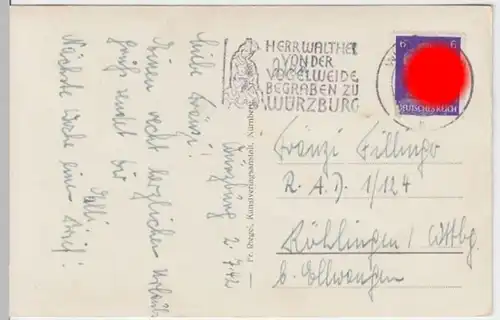 Würzburg 2.7.42
Liebe Fränzi!
Einen recht herzlichen Urlaubs-
gruß sendet dir
Elli
Nächste Woche einen
Brief!
Fr. Kunstverlagsanstalt, Nürnberg
HERR WALTHER
VON DER
VOGELWEIDE
BEGRABEN ZU
WÜRZBURG
6 6
DEUTSCHES REICH
Fränzi Fillinger
R.A.D. 1/124
Röhlingen/Wttbg.
b. Ellwangen